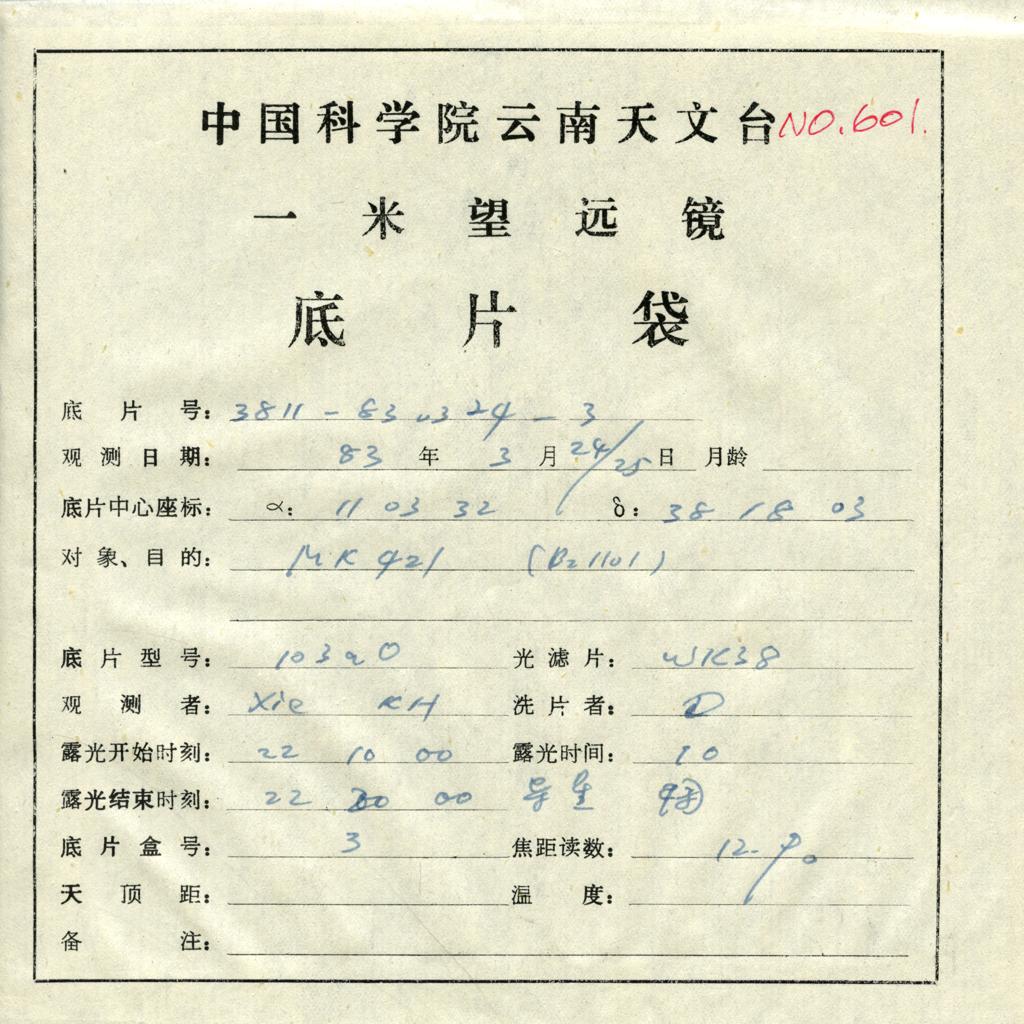 中国科学院云南天文台 NO.601.
一米望远镜
底片袋
底片号: 3811-830324-3
观测日期: 83年3月24/25日 月龄
底片中心座标: α: 11 03 32 δ: 38 18 03
对象、目的: MK 421 (B2 1101)
底片型号: 103aO 光滤片: WK38
观测者: Xie KH 洗片者: D
露光开始时刻: 22 10 00 露光时间: 10
露光结束时刻: 22 20 00 导星
底片盒号: 3 焦距读数: 12.90
天顶距: 温度:
备注: